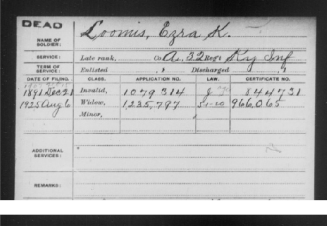 DEAD
NAME OF SOLDIER: Loomis, Ezra K.
SERVICE: Late rank, Co. A, 32 Reg't Ky Inf
TERM OF SERVICE: Enlisted , 1 Discharged , 1
DATE OF FILING. CLASS. APPLICATION NO. LAW. CERTIFICATE NO.
1891 Dec 21 Invalid, 1079314 844731
1925 Aug 6 Widow, 1235,797 966065
Minor,
ADDITIONAL SERVICES:
REMARKS: